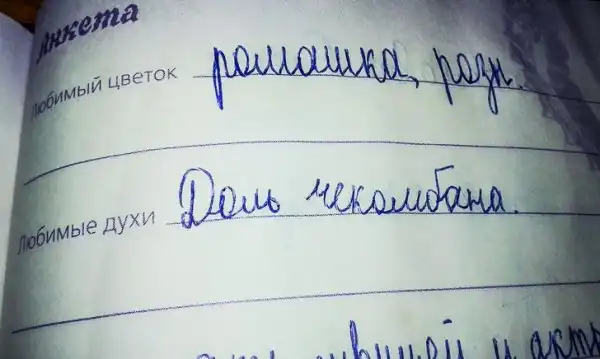 Анкета
Любимый цветок ромашка, разн.
Любимые духи Доль чекомбана.
и акти